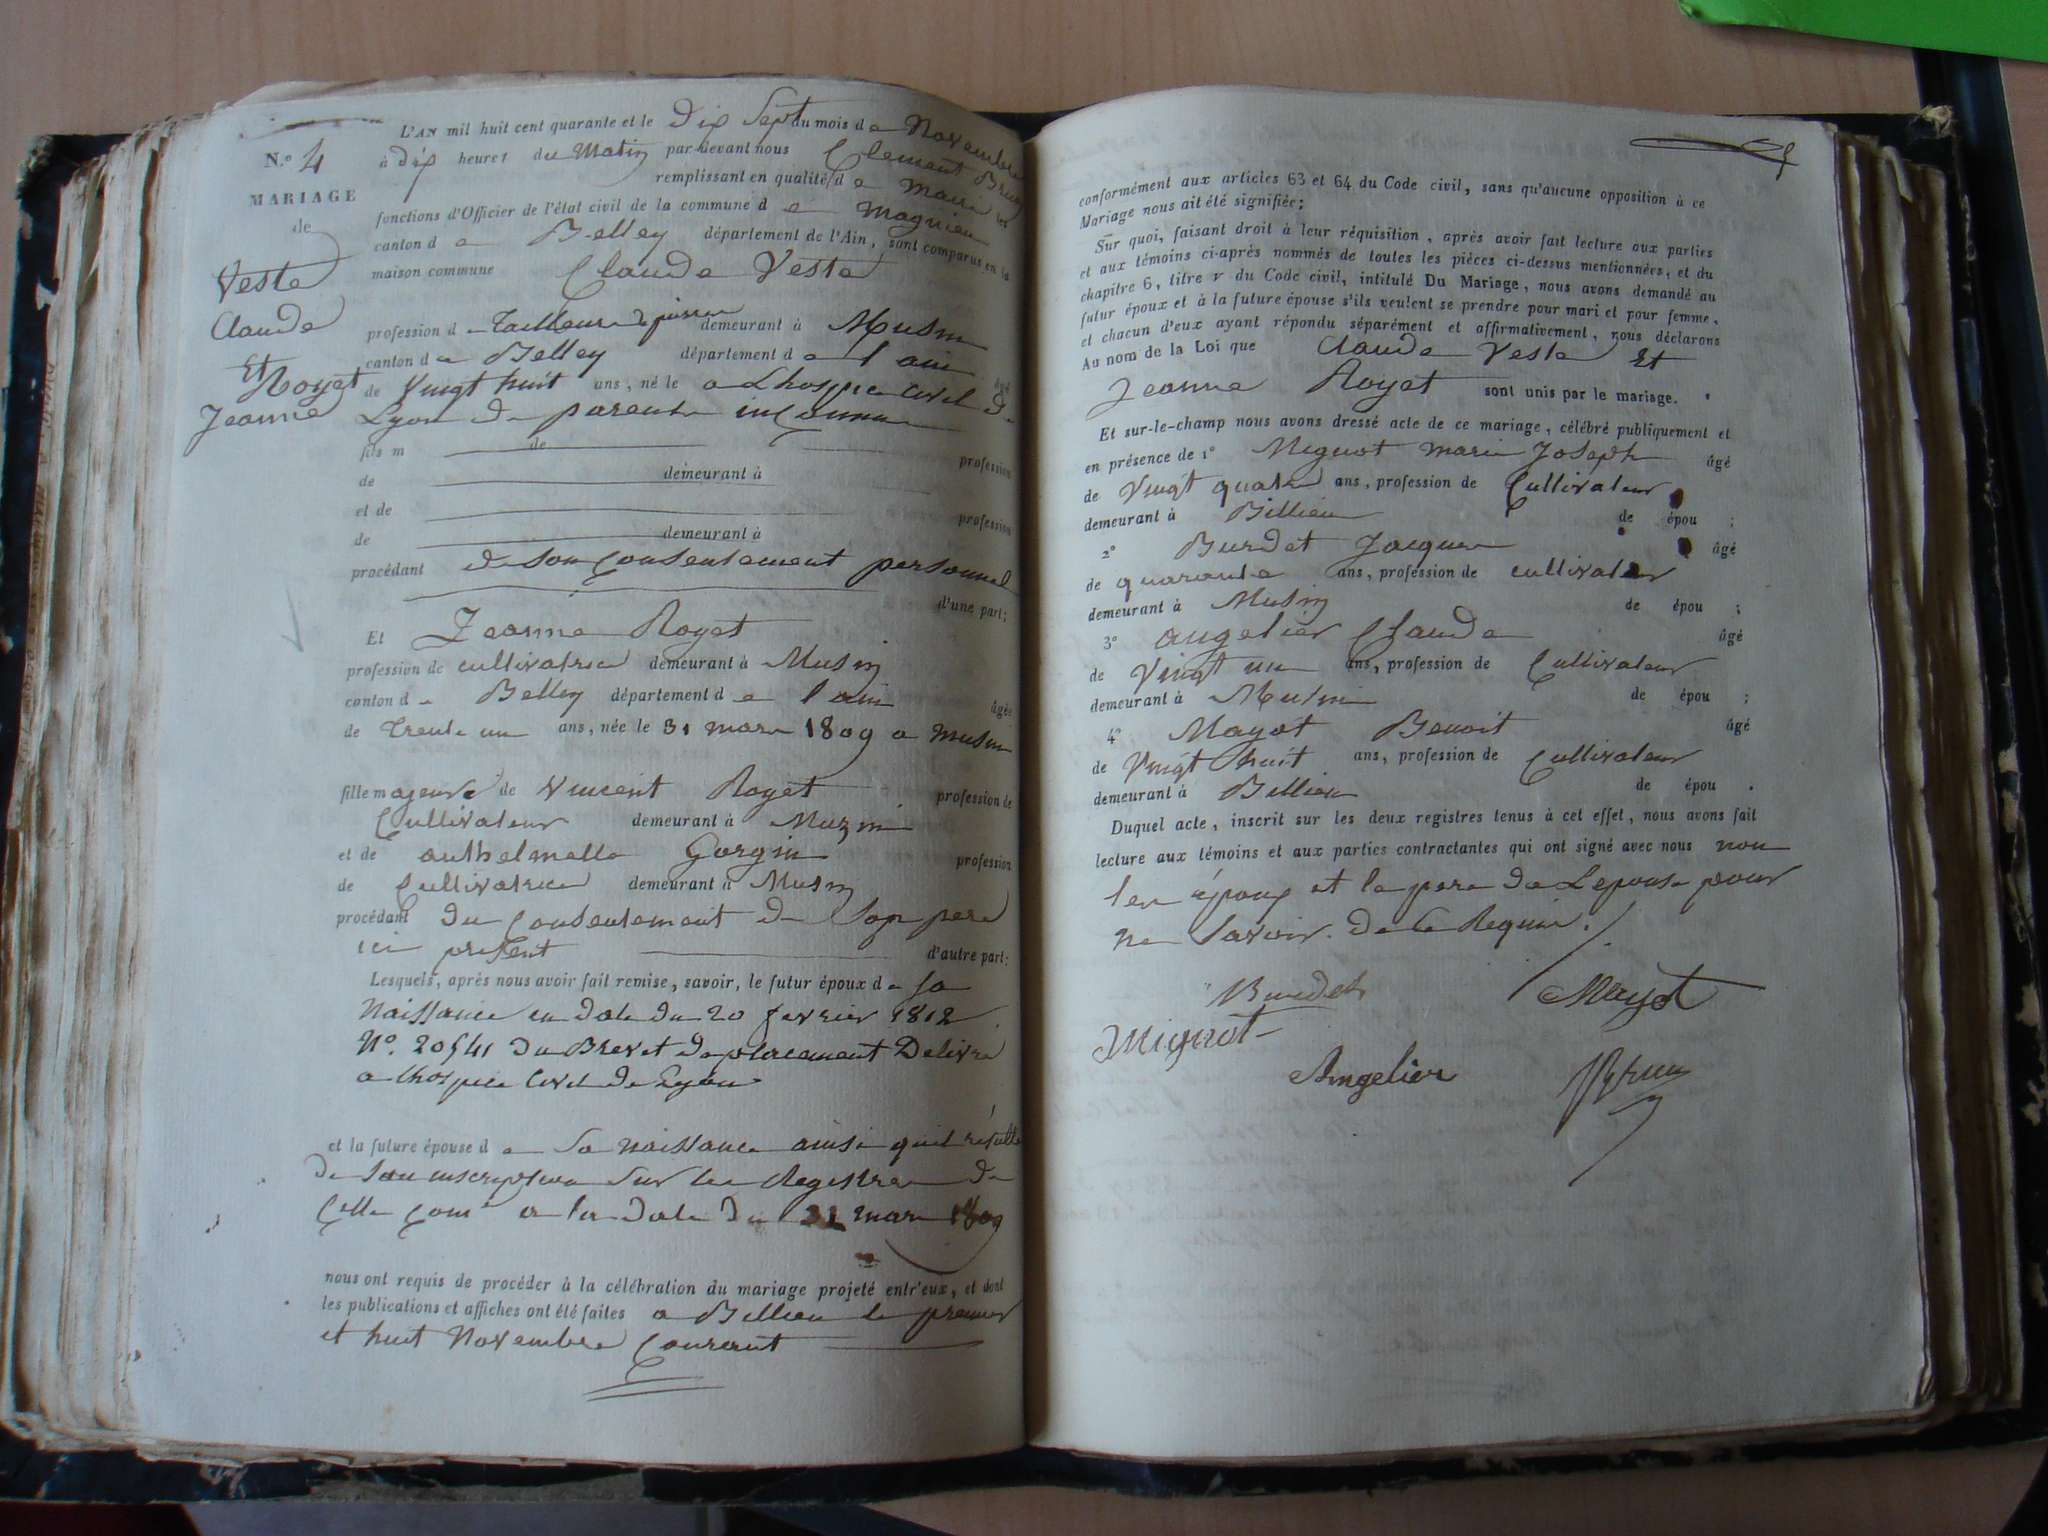 L'AN mil huit cent quarante et le Dix Sept du mois de Novembre
N.º 4 à dix heures du Matin par devant nous Clement Brun
remplissant en qualité de Maire les
MARIAGE
fonctions d'Officier de l'état civil de la commune de Magnieu
de
canton de Belley département de l'Ain, sont comparus en la
maison commune Claude Veste
Veste
Claude
Et
Royet
Jeanne
profession de Tailleur de pierre demeurant à Musin
canton de Belley département de l'ain âgé
de Vingt huit ans, né le a Lhospice Civil de
Lyon de parents inconnus
fils m de profession
de demeurant à
et de profession
de demeurant à
procédant de son Consentement personnel
d'une part;
Et Jeanne Royet
profession de cultivatrice demeurant à Musin
canton de Belley département de l'ain âgée
de Trente un ans, née le 31 mars 1809 a musin
fille mageure de Vincent Royet profession de
Cultivateur demeurant à Muzin
et de anthelmette Gorgin profession
de Cultivatrice demeurant à Musin
procédant du Consentement de Son pere
ici present d'autre part:
Lesquels, après nous avoir fait remise, savoir, le futur époux de sa
Naissance en date du 20 fevrier 1812
Nº. 20541 du Brevet de placement Delivré
a lhospice Civil de Lyon
et la future épouse de sa naissance ainsi quil résulte
de son inscription sur les Registres de
Cette Come a la date du 31 mars 1809
nous ont requis de procéder à la célébration du mariage projeté entr'eux, et dont
les publications et affiches ont été faites a Billieu le premier
et huit Novembre Courant
conformément aux articles 63 et 64 du Code civil, sans qu'aucune opposition à ce
Mariage nous ait été signifiée;
Sur quoi, faisant droit à leur réquisition, après avoir fait lecture aux parties
et aux témoins ci-après nommés de toutes les pièces ci-dessus mentionnées, et du
chapitre 6, titre v du Code civil, intitulé Du Mariage, nous avons demandé au
futur époux et à la future épouse s'ils veulent se prendre pour mari et pour femme,
et chacun d'eux ayant répondu séparément et affirmativement, nous déclarons
Au nom de la Loi que Claude Veste Et
Jeanne Royet sont unis par le mariage.
Et sur-le-champ nous avons dressé acte de ce mariage, célébré publiquement et
en présence de 1º Mignot marie Joseph âgé
de Vingt quatre ans, profession de Cultivateur
demeurant à Billieu de épou ;
2º Burdet Jacques âgé
de quarante ans, profession de cultivateur
demeurant à Musin de épou ;
3º angelier Claude âgé
de Vingt un ans, profession de Cultivateur
demeurant à Musin de épou ;
4º Mayot Benoit âgé
de Vingt huit ans, profession de Cultivateur
demeurant à Billieu de épou .
Duquel acte, inscrit sur les deux registres tenus à cet effet, nous avons fait
lecture aux témoins et aux parties contractantes qui ont signé avec nous non
les époux et le pere de Lepouse pour
ne Savoir. de ce Requis.
Burdet Mayot
Mignot
Angelier Brun